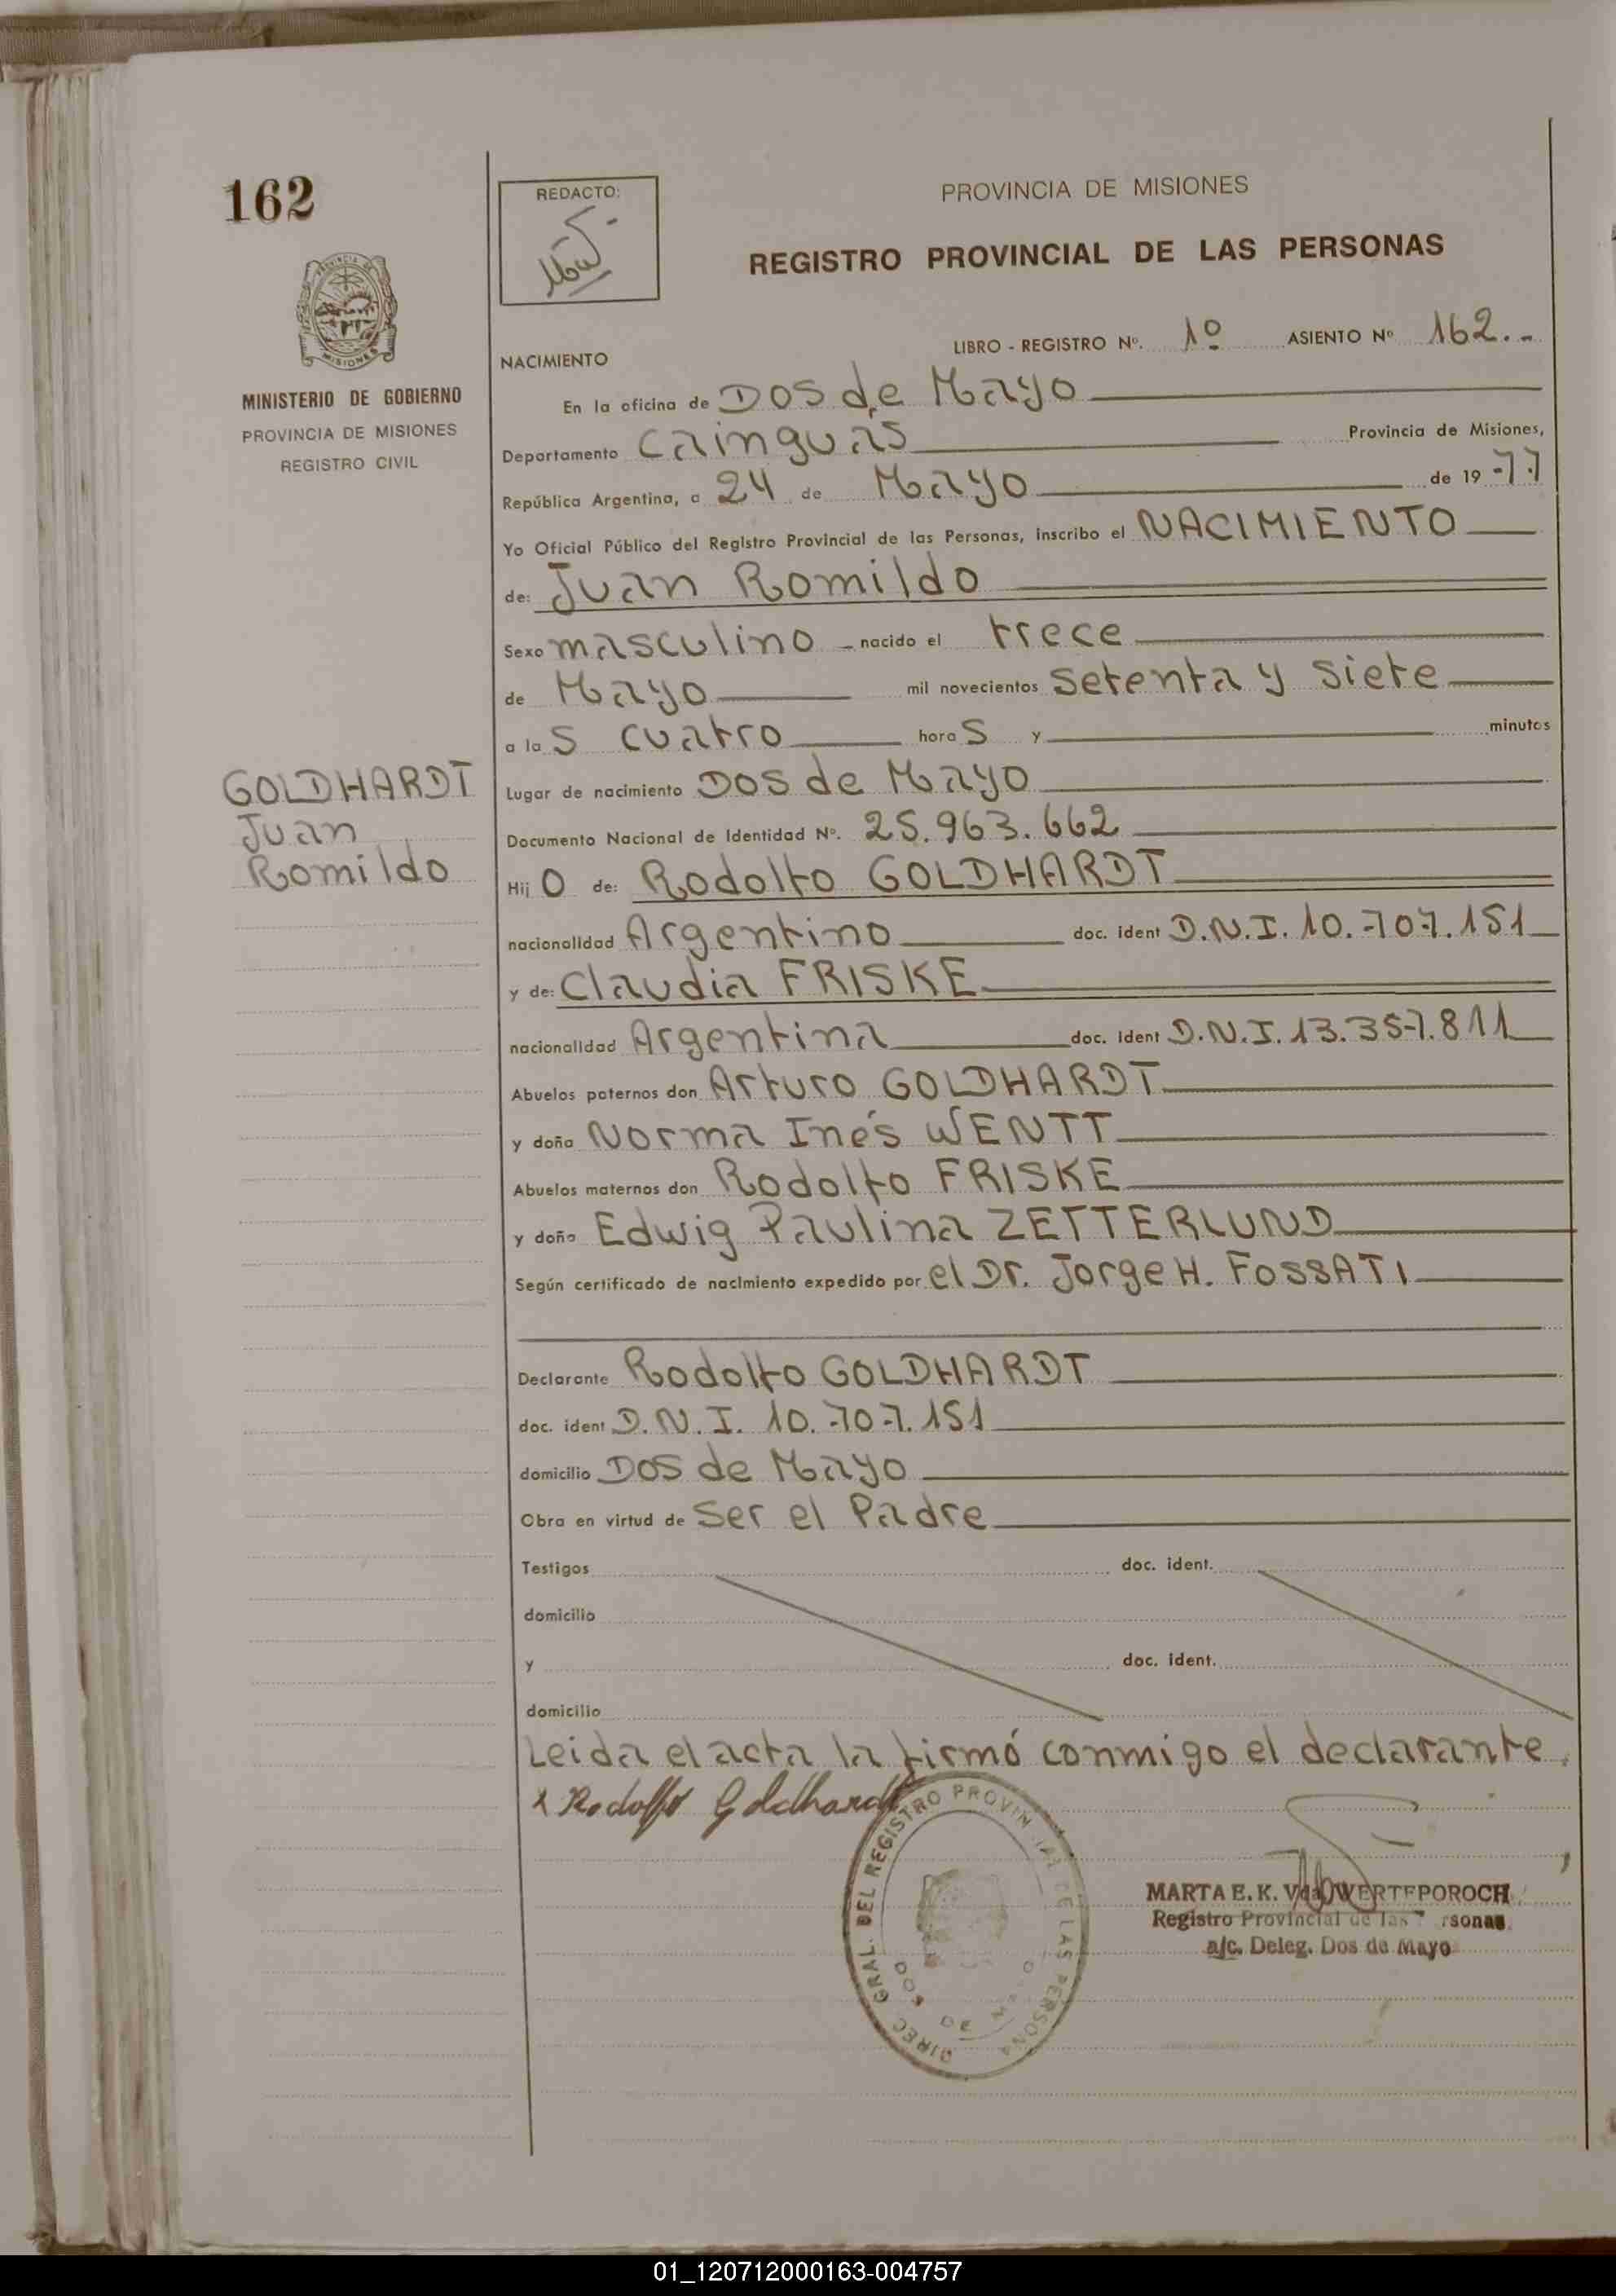 162
REDACTO:
PROVINCIA DE MISIONES
REGISTRO PROVINCIAL DE LAS PERSONAS
MISIONES
MINISTERIO DE GOBIERNO
PROVINCIA DE MISIONES
REGISTRO CIVIL
LIBRO - REGISTRO Nº. 1º ASIENTO Nº 162.-
NACIMIENTO
En la oficina de Dos de Mayo
Departamento Cainguás Provincia de Misiones,
República Argentina, a 24 de Mayo de 19 77
Yo Oficial Público del Registro Provincial de las Personas, inscribo el NACIMIENTO
de: Juan Romildo
Sexo masculino nacido el trece
de Mayo mil novecientos setenta y siete
a las cuatro horas y minutos
GOLDHARDT
Juan
Romildo
Lugar de nacimiento Dos de Mayo
Documento Nacional de Identidad Nº. 25.963.662
Hijo de: Rodolfo GOLDHARDT
nacionalidad Argentino doc. ident D.N.I. 10.707.151
y de: Claudia FRISKE
nacionalidad Argentina doc. ident D.N.I. 13.357.811
Abuelos paternos don Arturo GOLDHARDT
y doña Norma Inés WENTT
Abuelos maternos don Rodolfo FRISKE
y doña Edwig Paulina ZETTERLUND
Según certificado de nacimiento expedido por el Dr. Jorge H. FOSSATI
Declarante Rodolfo GOLDHARDT
doc. ident D.N.I. 10.707.151
domicilio Dos de Mayo
Obra en virtud de ser el Padre
Testigos doc. ident.
domicilio
y doc. ident.
domicilio
Leida el acta la firmó conmigo el declarante.
x Rodolfo Goldhardt
DIREC. GRAL. DEL REGISTRO PROVINCIAL DE LAS PERSONAS
DOS DE MAYO
MARTA E. K. Vda. WERTEPOROCH
Registro Provincial de las Personas
a/c. Deleg. Dos de Mayo
01_120712000163-004757